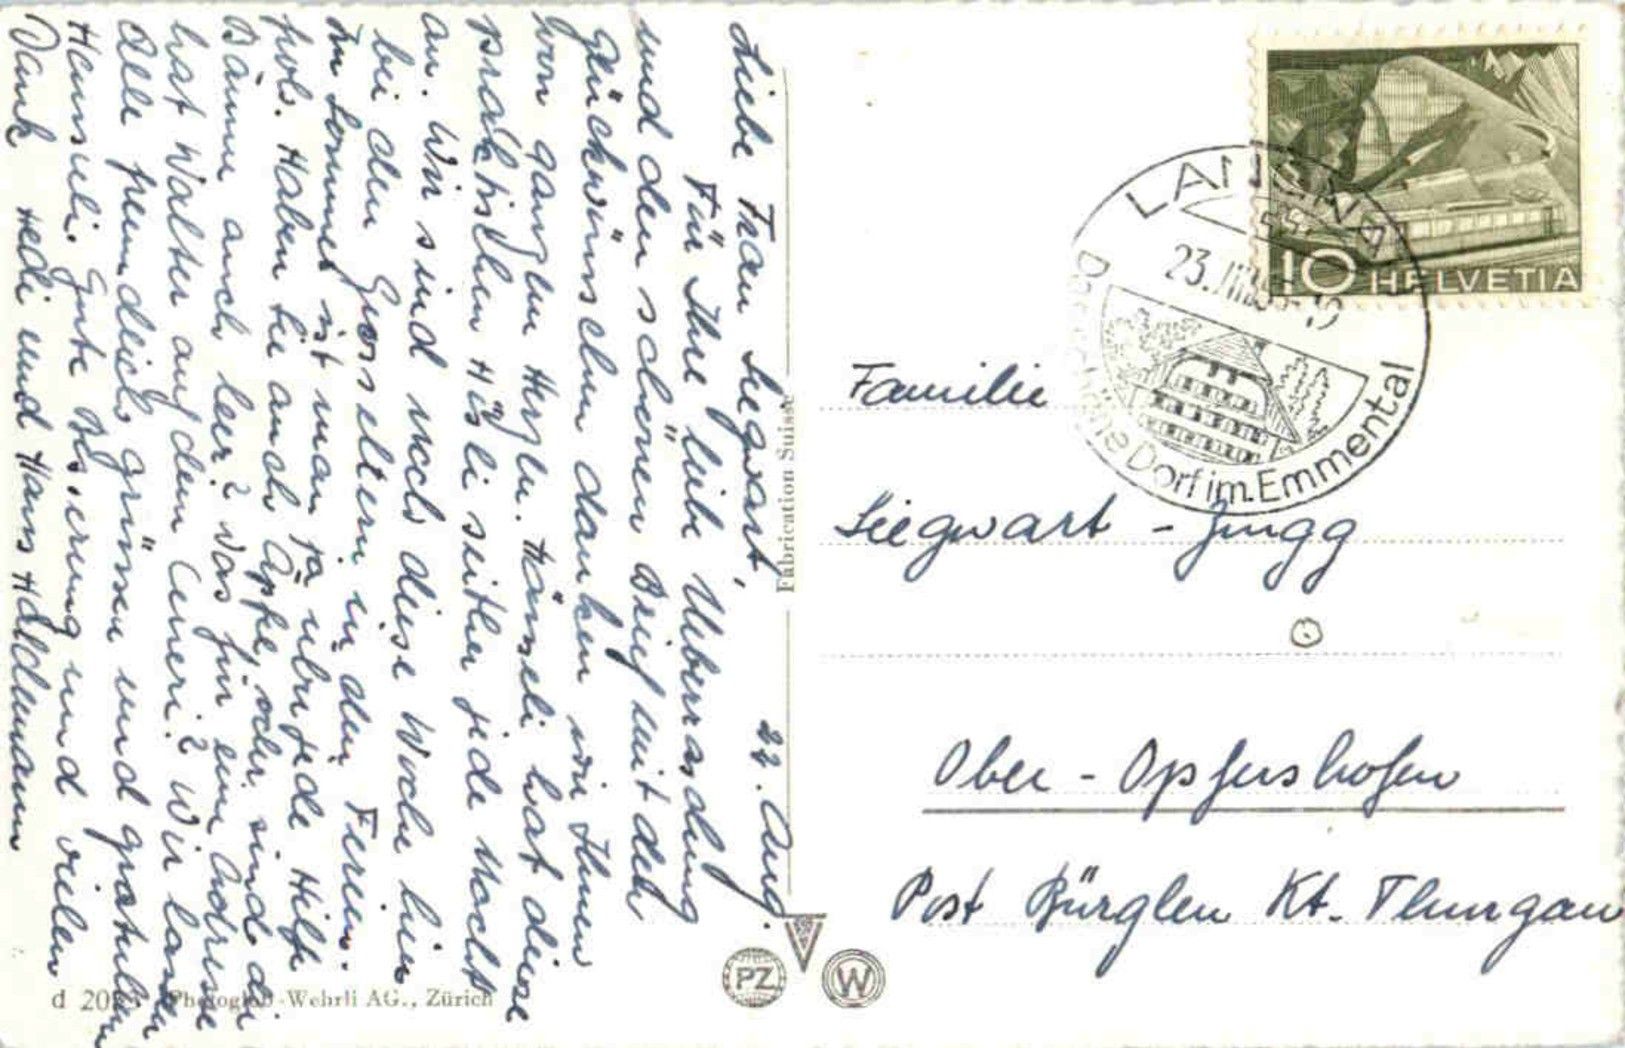 22. Aug.
Liebe Frau Siegwart,
Für Ihre liebe Ueberraschung
und den schönen Brief mit den
Glückwünschen danken wir Ihnen
von ganzem Herzen. Hänseli hat diese
praktischen Hösli seither jede Nacht
an. Wir sind noch diese Woche hier
bei den Grosseltern in den Ferien.
Im Sommer ist man ja über jede Hilfe
froh. Haben Sie auch Äpfel, oder sind die
Bäume auch leer? Was für eine Adresse
hat Walter auf dem Ceneri? Wir lassen
alle freundlich grüssen und gratulieren
Heinsueli. Gute Besserung und vielen
Dank Hedi und Hans Haldemann
Fabrication Suisse
d 20 Photoglob-Wehrli AG., Zürich
PZ
W
LANGNAU
23.VIII
Das schöne Dorf im Emmental
10 HELVETIA
Familie
Siegwart - Zingg
Ober - Opfershofen
Post Bürglen Kt. Thurgau